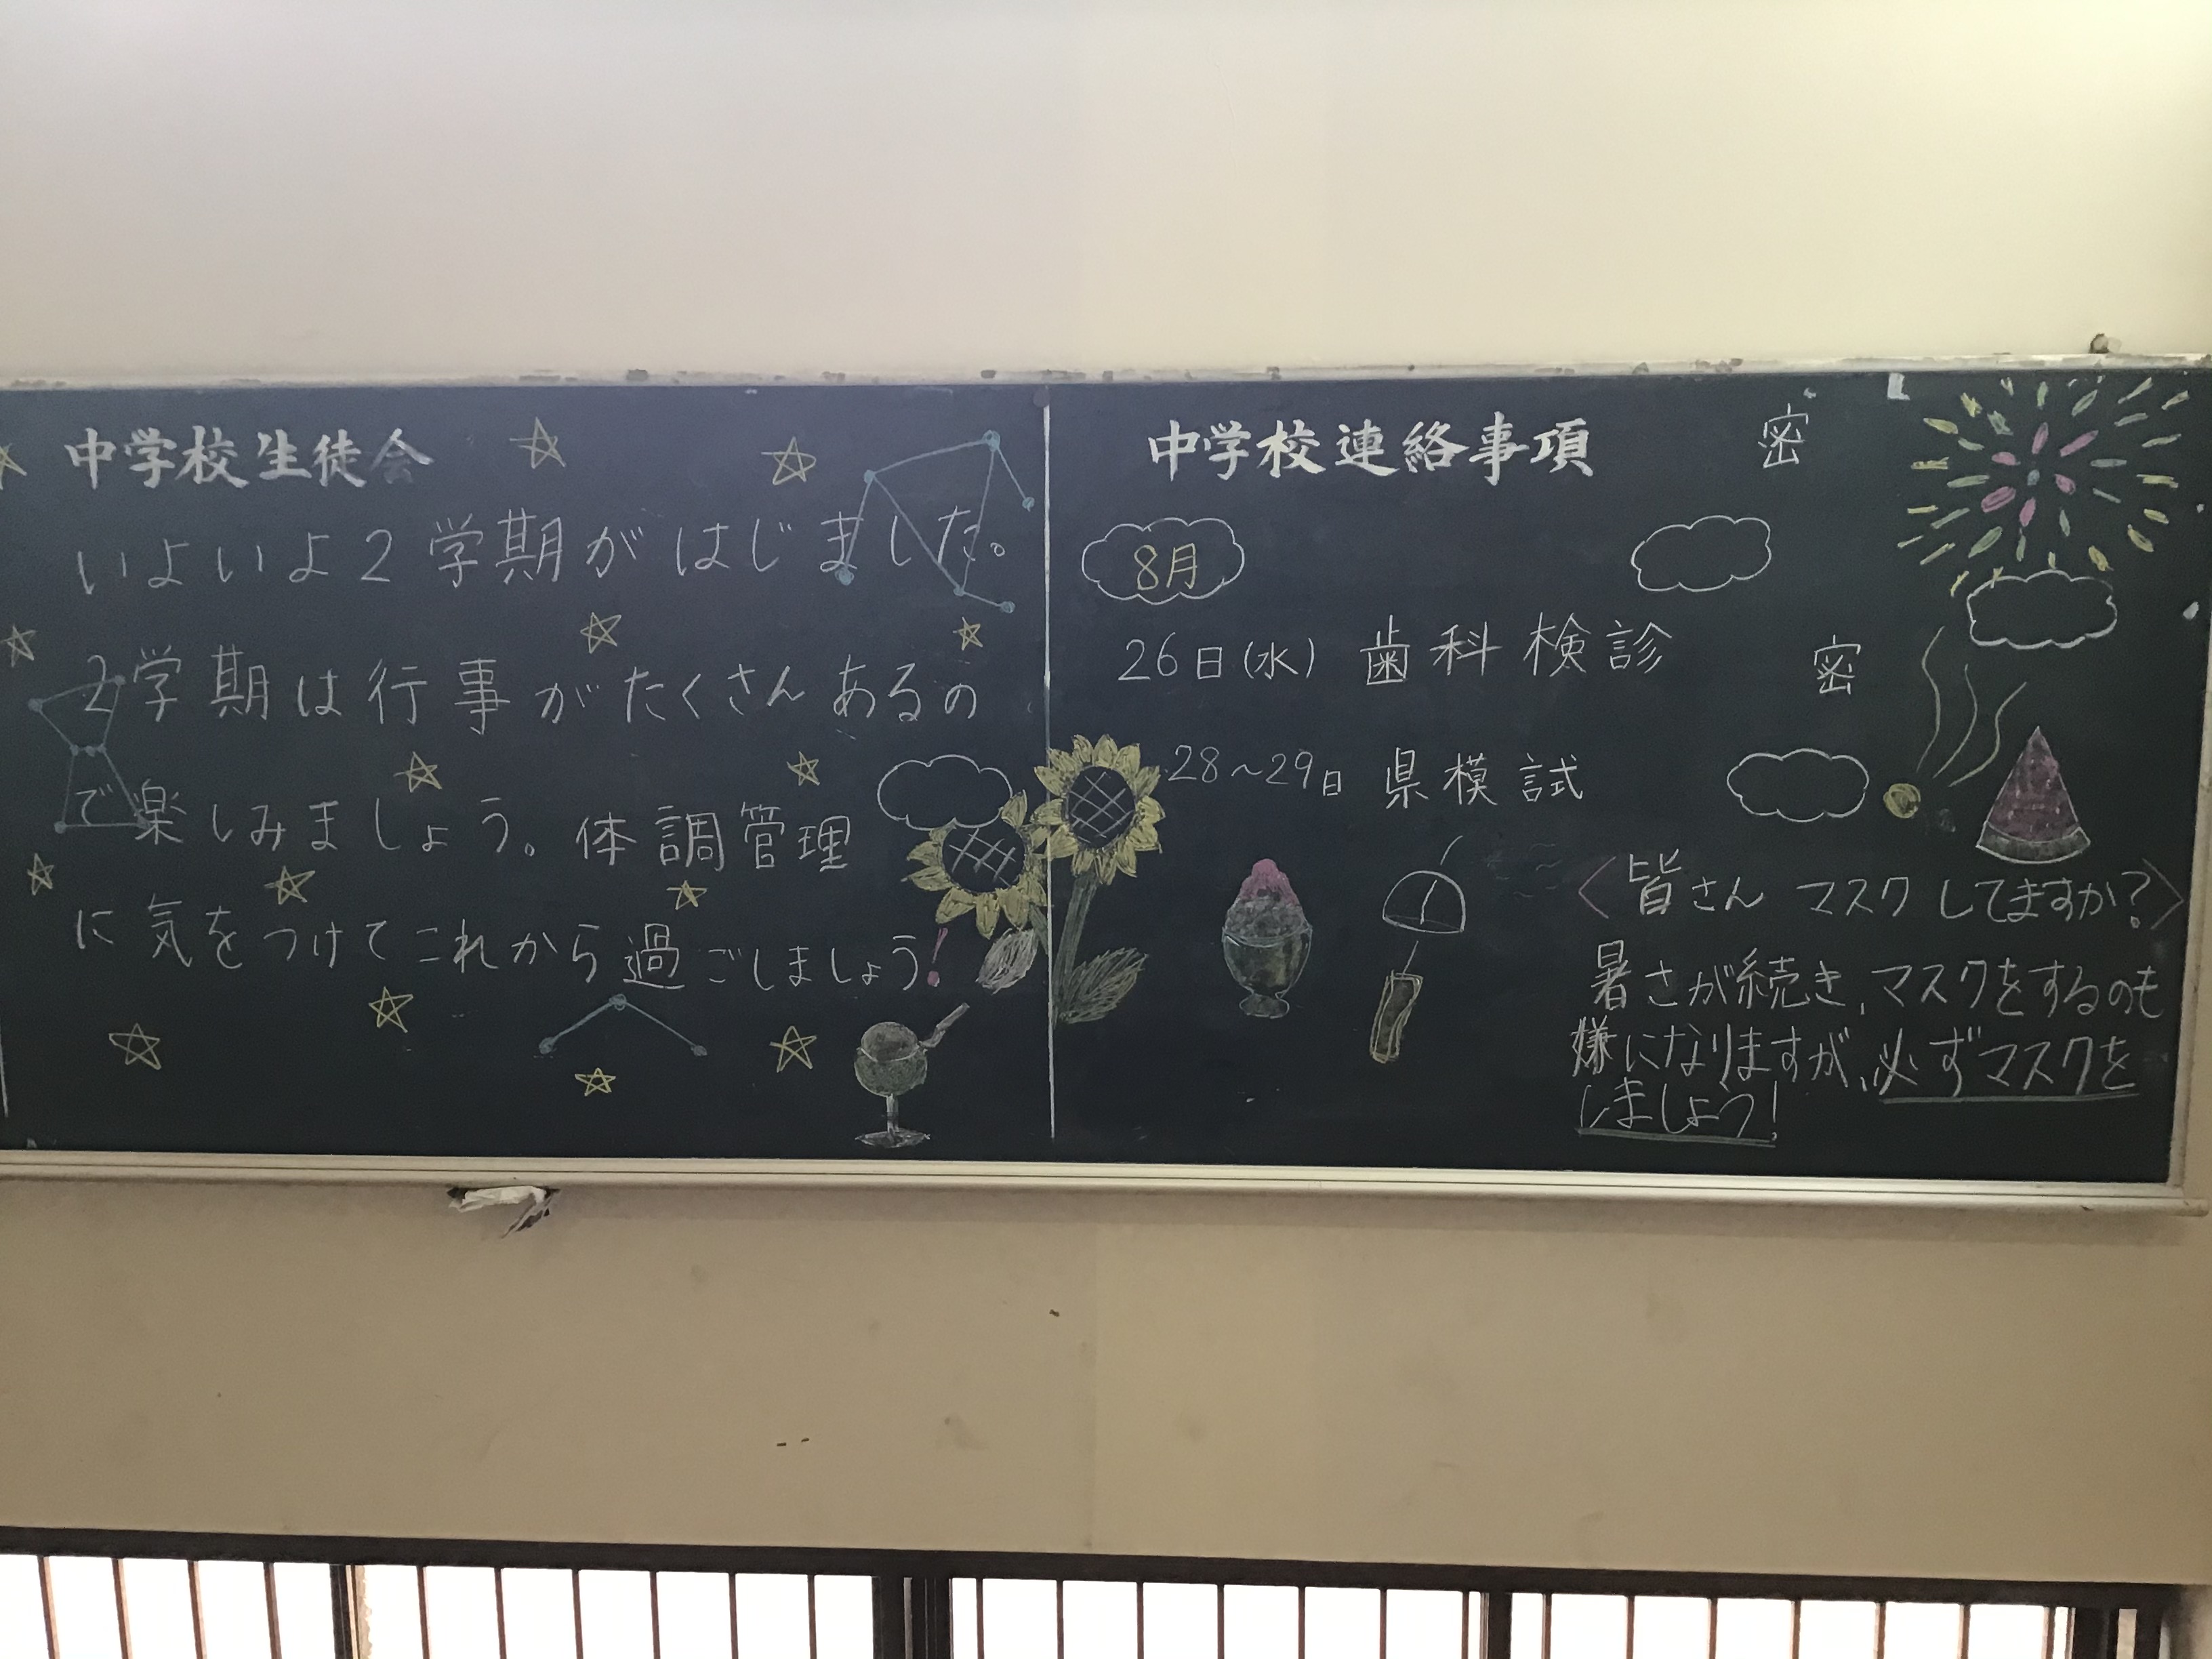 中学校生徒会
いよいよ2学期がはじました。
2学期は行事がたくさんあるの
で楽しみましょう。体調管理
に気をつけてこれから過ごしましょう!
中学校連絡事項
密
8月
26日(水) 歯科検診
密
28~29日 県模試
<皆さん マスクしてますか?>
暑さが続き、マスクをするのも
嫌になりますが、必ずマスクを
しましょう!